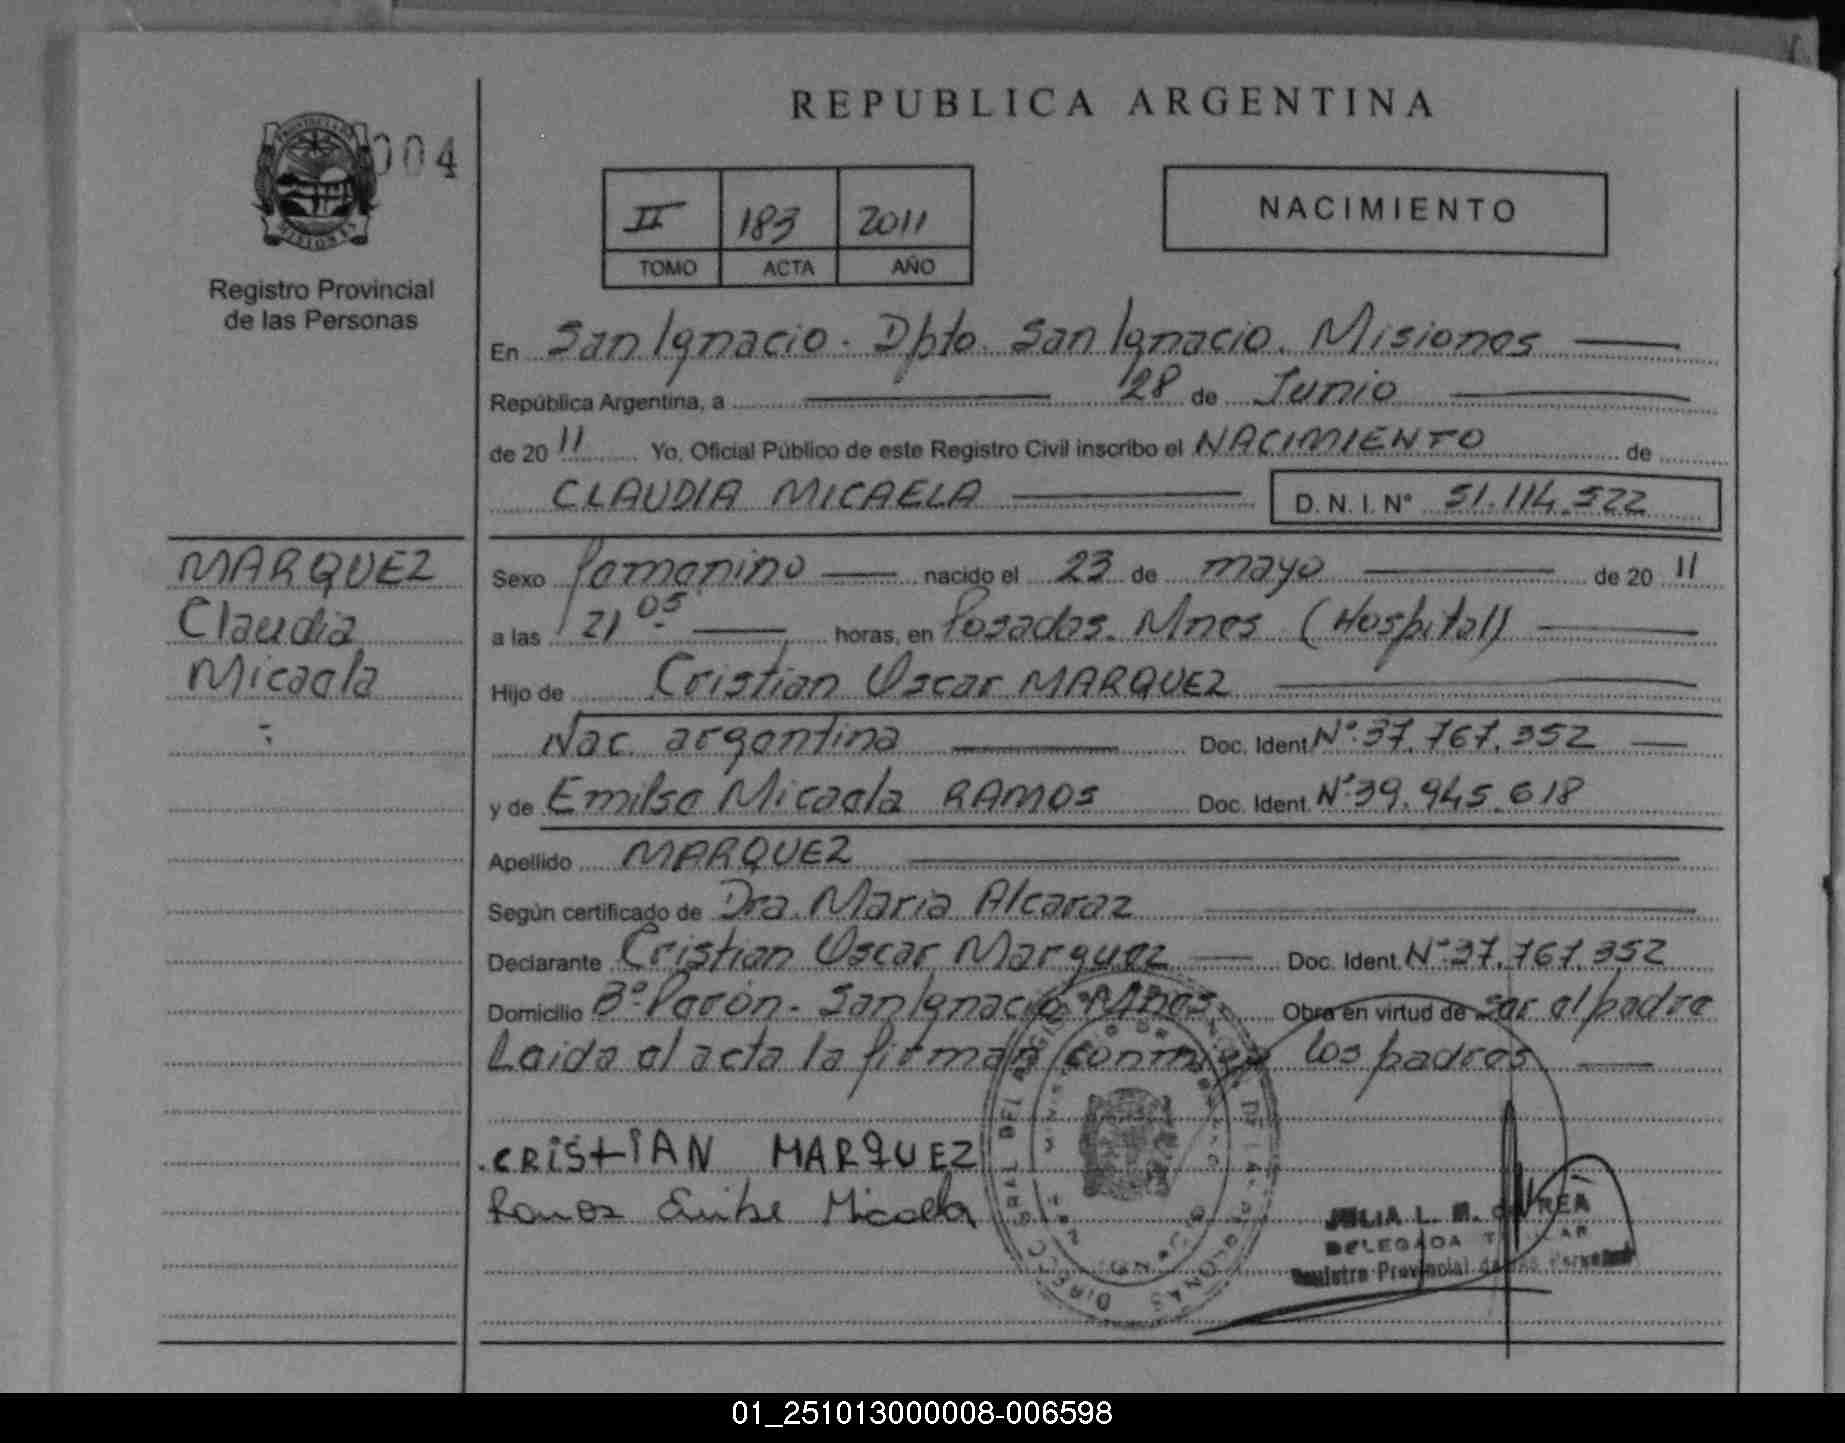 REPUBLICA ARGENTINA
004
II 183 2011
TOMO ACTA AÑO
NACIMIENTO
Registro Provincial
de las Personas
En San Ignacio - Dpto. San Ignacio. Misiones
República Argentina, a 28 de Junio
de 20 11 Yo, Oficial Público de este Registro Civil inscribo el NACIMIENTO de
CLAUDIA MICAELA D.N.I. N° 51.114.522
MARQUEZ
Claudia
Micaela
Sexo femenino nacido el 23 de mayo de 20 11
a las 21 05 horas, en Posadas. Mnes (Hospital)
Hijo de Cristian Oscar MARQUEZ
Nac. argentina Doc. Ident N° 37.767.352
y de Emilse Micaela RAMOS Doc. Ident. N° 39.945.618
Apellido MARQUEZ
Según certificado de Dra. Maria Alcaraz
Declarante Cristian Oscar Marquez Doc. Ident. N° 37.767.352
Domicilio B° Perón - San Ignacio Mnes Obra en virtud de ser el padre
Leida el acta la firman conmigo los padres
CRISTIAN MARQUEZ
Ramos Emilse Micaela
JULIA L. M.
DELEGADA
Registro Provincial de las Personas
01_251013000008-006598